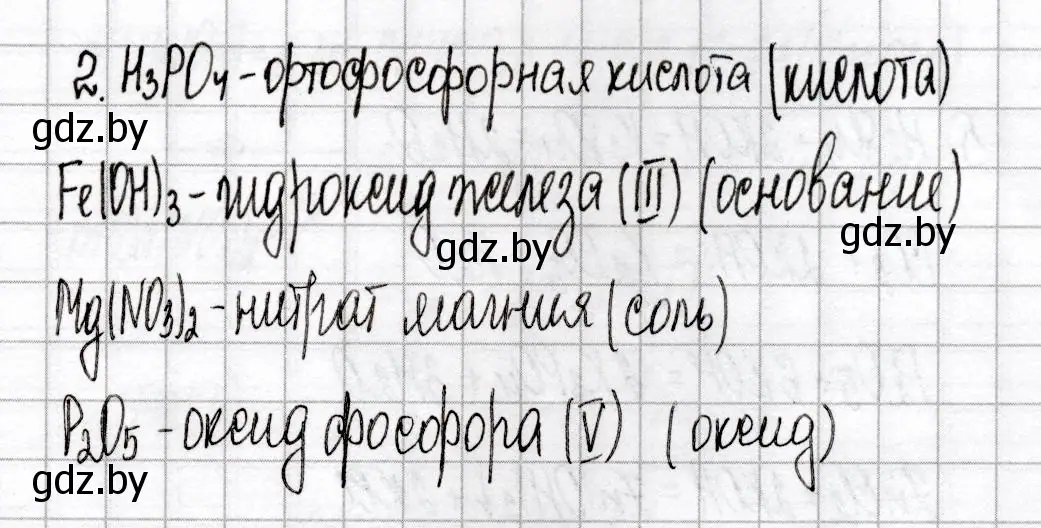 2. H₃PO₄ - ортофосфорная кислота (кислота)
gdz.by
Fe(OH)₃ - гидроксид железа (III) (основание)
gdz.by
gdz.by
Mg(NO₃)₂ - нитрат магния (соль)
P₂O₅ - оксид фосфора (V) (оксид)
gdz.by